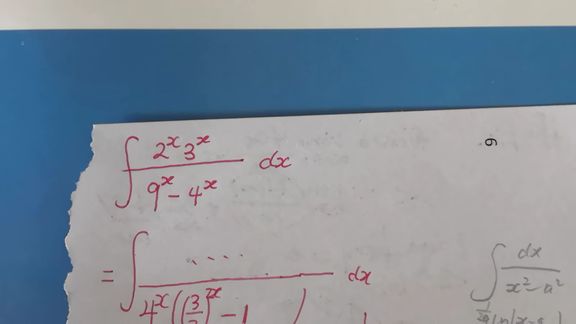 ∫ 2^x 3^x / (9^x - 4^x) dx
= ∫ .... / 4^x ((3/2)^2x - 1) dx
6
∫ dx / (x^2 - a^2)